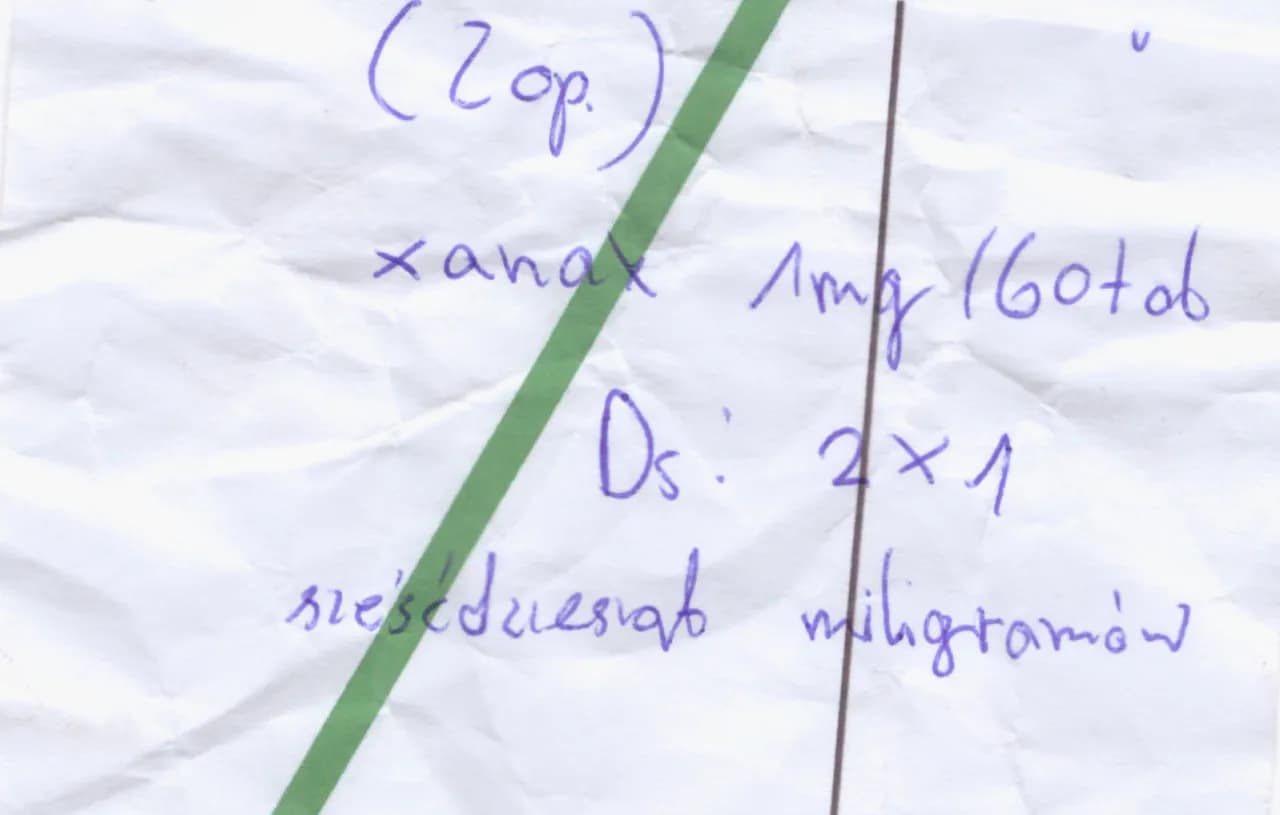 (2 op.)
xanax 1mg /60 tab
Ds: 2 x 1
sześćdziesiąt miligramów